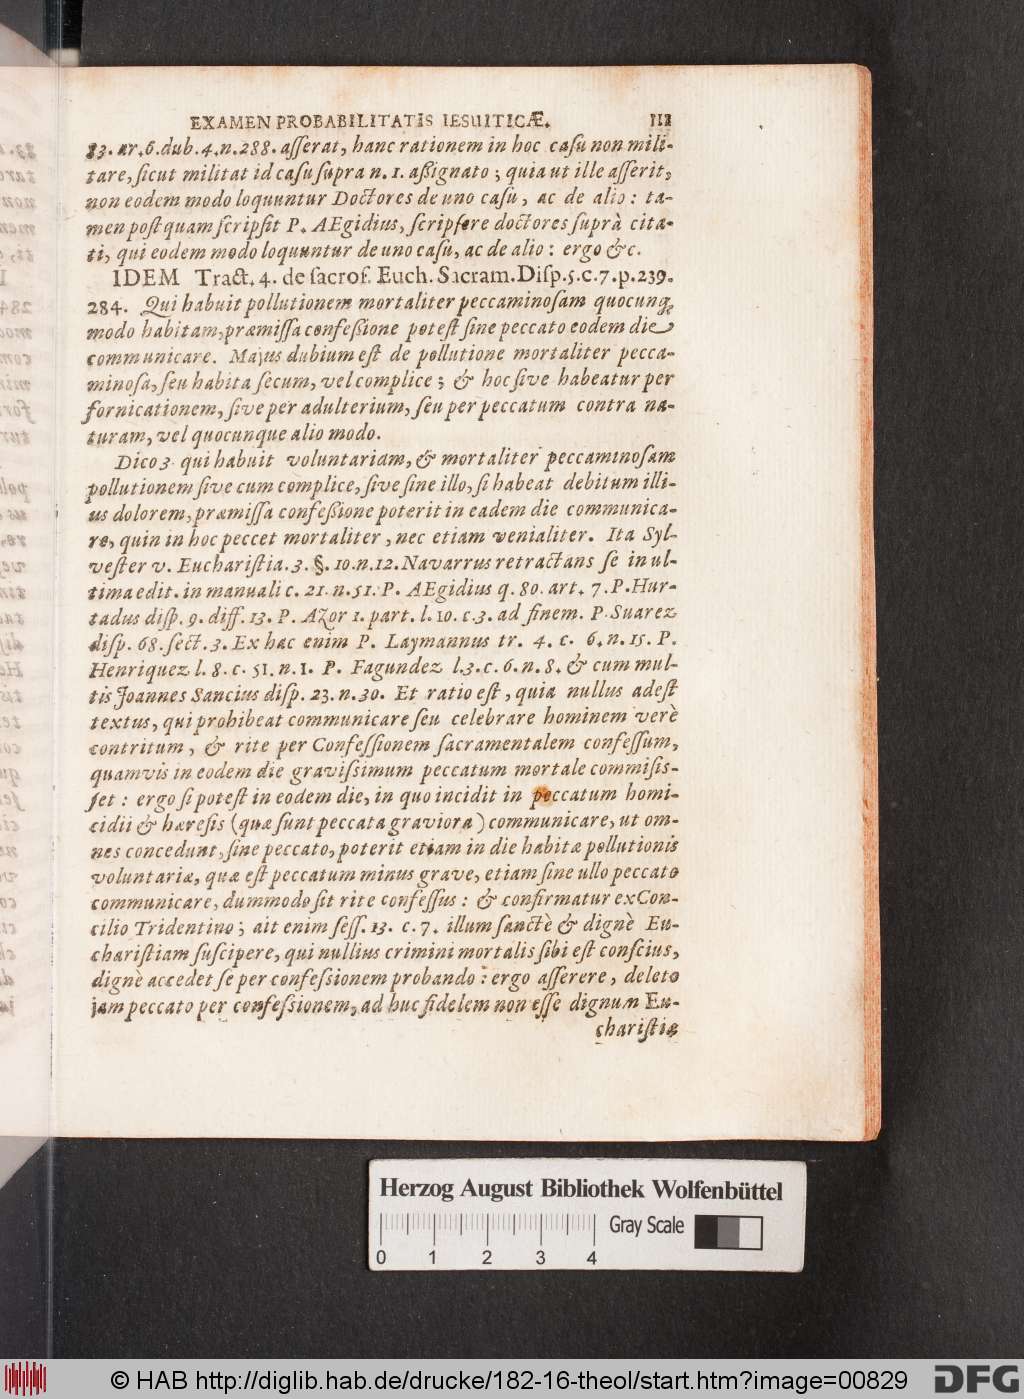 EXAMEN PROBABILITATIS IESUITICÆ. 111
23. ar. 6. dub. 4. n. 288. aſſerat, hanc rationem in hoc caſu non mili-
tare, ſicut militat id caſu ſupra n. 1. aßignato; quia ut ille aſſerit,
non eodem modo loquuntur Doctores de uno caſu, ac de alio: ta-
men poſtquam ſcripſit P. AEgidius, ſcripſere doctores ſuprà cita-
ti, qui eodem modo loquuntur de uno caſu, ac de alio: ergo &c.
IDEM Tract. 4. de ſacroſ. Euch. Sacram. Diſp. 5. c. 7. p. 239.
284. Qui habuit pollutionem mortaliter peccaminoſam quocunq;
modo habitam, præmiſſa confeßione poteſt ſine peccato eodem die
communicare. Majus dubium eſt de pollutione mortaliter pecca-
minoſa, ſeu habita ſecum, vel complice; & hoc ſive habeatur per
fornicationem, ſive per adulterium, ſeu per peccatum contra na-
turam, vel quocunque alio modo.
Dico 3. qui habuit voluntariam, & mortaliter peccaminoſam
pollutionem ſive cum complice, ſive ſine illo, ſi habeat debitum illi-
us dolorem, præmiſſa confeßione poterit in eadem die communica-
re, quin in hoc peccet mortaliter, nec etiam venialiter. Ita Syl-
veſter v. Euchariſtia. 3. §. 10. n. 12. Navarrus retractans ſe in ul-
tima edit. in manuali c. 21. n. 51. P. AEgidius q. 80. art. 7. P. Hur-
tadus diſp. 9. diff. 13. P. AZor 1. part. l. 10. c. 3. ad finem. P. Suarez
diſp. 68. ſect. 3. Ex hac enim P. Laymannus tr. 4. c. 6. n. 15. P.
Henriquez l. 8. c. 51. n. 1. P. Fagundez l. 3. c. 6. n. 8. & cum mul-
tis Joannes Sancius diſp. 23. n. 30. Et ratio eſt, quia nullus adeſt
textus, qui prohibeat communicare ſeu celebrare hominem verè
contritum, & rite per Confeſſionem ſacramentalem confeſſum,
quamvis in eodem die graviſsimum peccatum mortale commiſiſ-
ſet: ergo ſi poteſt in eodem die, in quo incidit in peccatum homi-
cidii & hæreſis (quæ ſunt peccata graviora) communicare, ut om-
nes concedunt, ſine peccato, poterit etiam in die habitæ pollutionis
voluntariæ, quæ eſt peccatum minus grave, etiam ſine ullo peccato
communicare, dummodo ſit rite confeſſus: & confirmatur ex Con-
cilio Tridentino; ait enim ſeſſ. 13. c. 7. illum ſanctè & dignè Eu-
chariſtiam ſuſcipere, qui nullius criminis mortalis ſibi eſt conſcius,
dignè accedet ſe per confeſsionem probando: ergo aſſerere, deleto
jam peccato per confeſsionem, ad huc fidelem non eſſe dignum Eu-
chariſtiæ
Herzog August Bibliothek Wolfenbüttel
Gray Scale
0 1 2 3 4
© HAB http://diglib.hab.de/drucke/182-16-theol/start.htm?image=00829
DFG